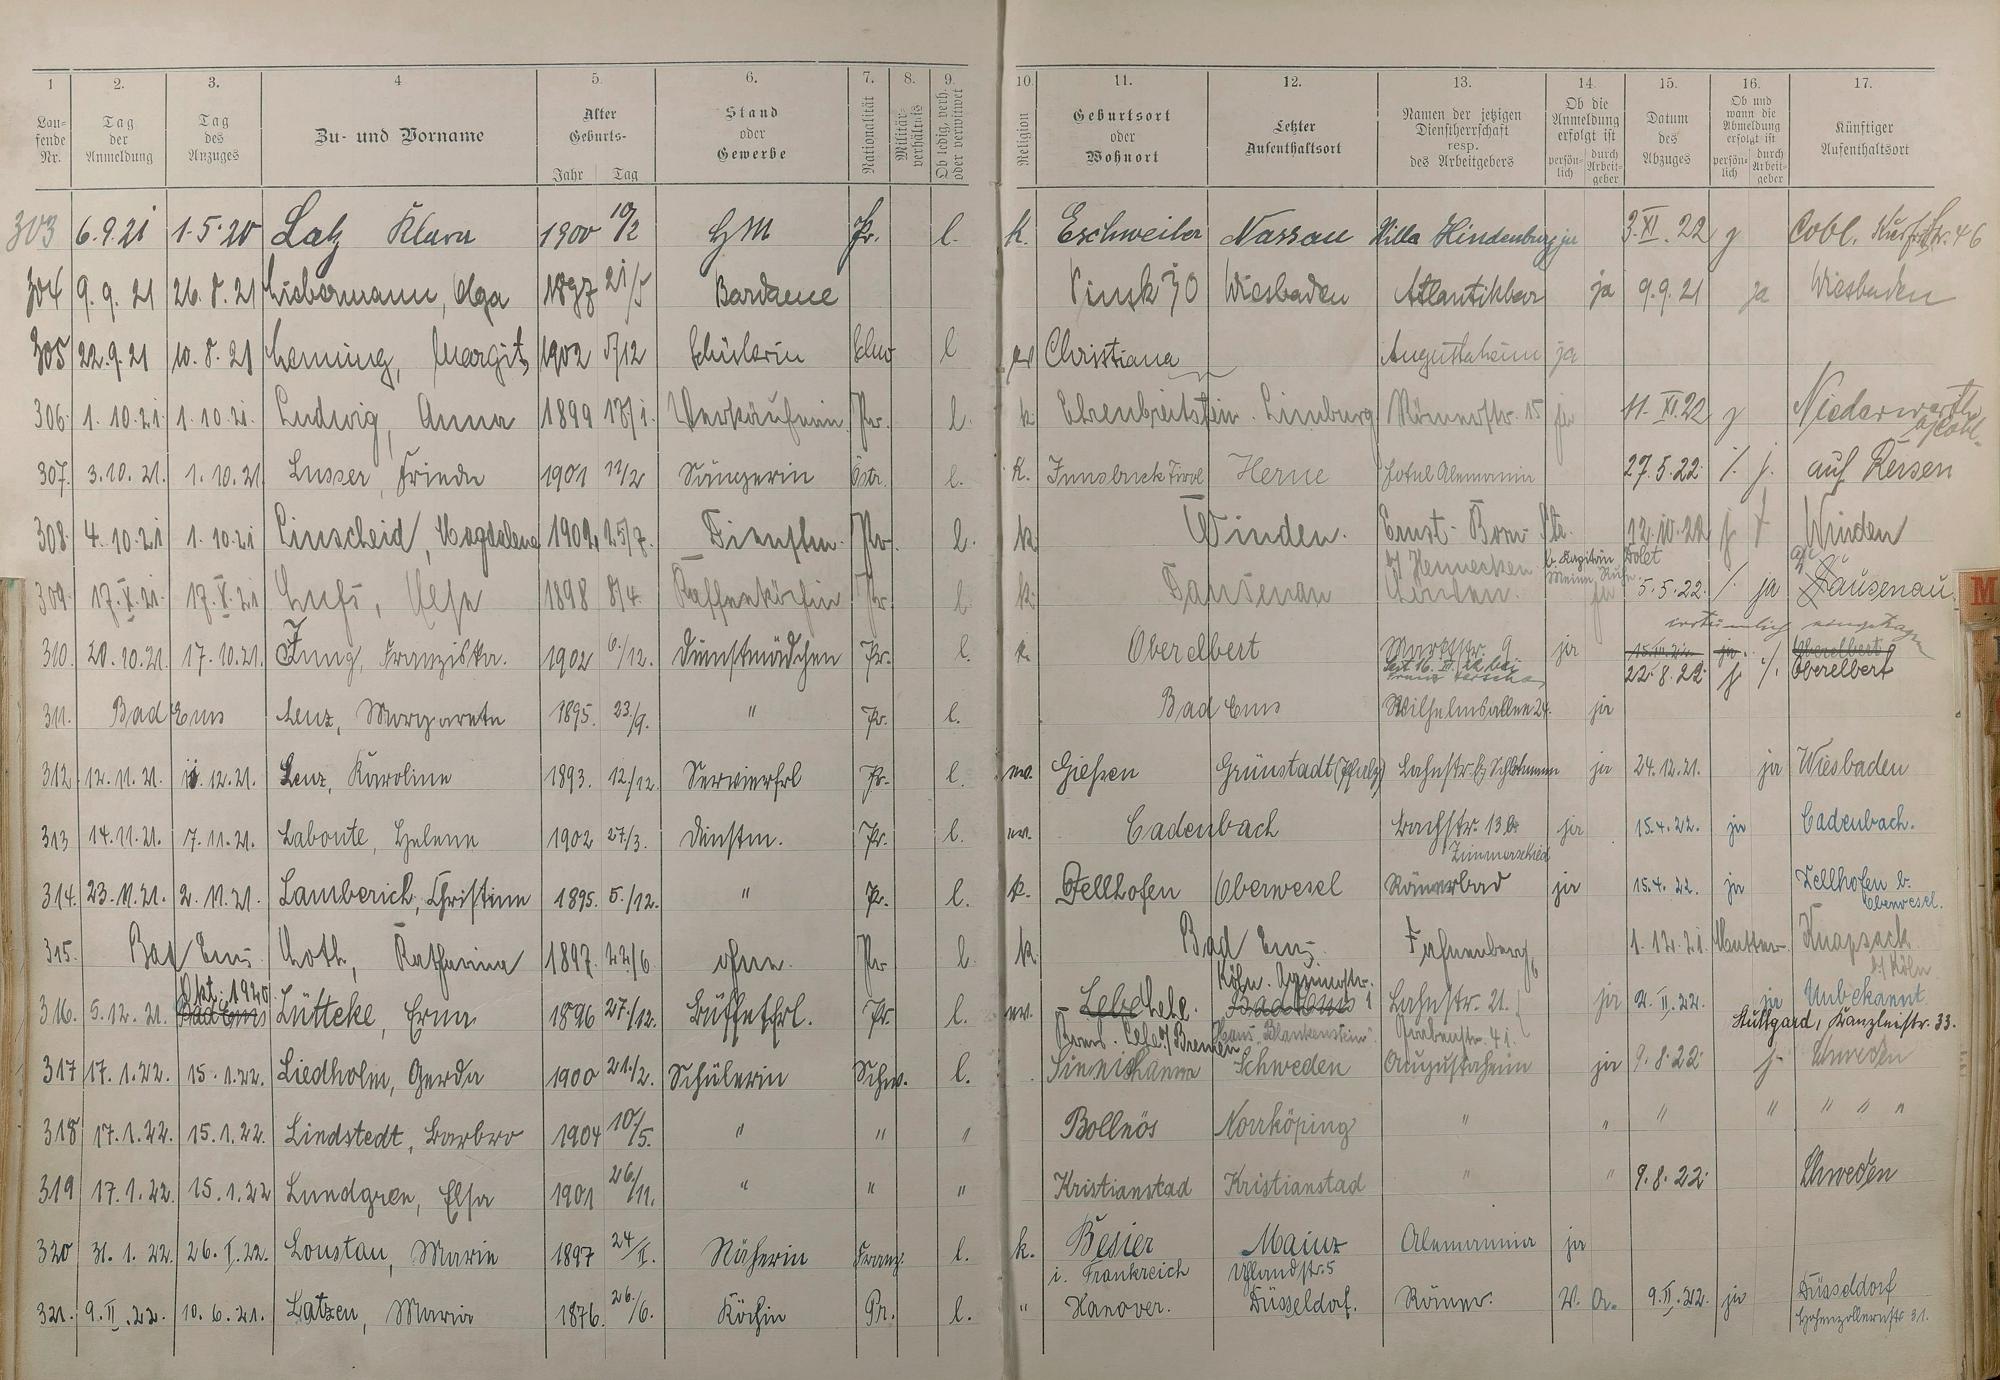 1 2. 3. 4 5. 6. 7. 8. 9. 10. 11. 12. 13. 14. 15. 16. 17.
Lau-fende Nr. Tag der Anmeldung Tag des Anzuges Zu- und Vorname Alter Geburts- Jahr Tag Stand oder Gewerbe Nationalität Militär-verhältnis Ob ledig, verh. oder verwitwet Religion Geburtsort oder Wohnort Letzter Aufenthaltsort Namen der jetzigen Dienstherrschaft resp. des Arbeitgebers Ob die Anmeldung erfolgt ist persön-lich durch Arbeit-geber Datum des Abzuges Ob und wann die Abmeldung erfolgt ist persön-lich durch Arbeit-geber Künftiger Aufenthaltsort
303 6.9.21 1.5.20 Latz Klara 1900 10/2 HM Pr. l. k. Eschweiler Nassau Villa Hindenburg ja 3.XI.22 j Cobl. 46
304 9.9.21 26.8.21 Liebermann, Olga 1897 21/5 Bardame Pinsk Wiesbaden Atlantikbar ja 9.9.21 ja Wiesbaden
305 22.9.21 10.8.21 Lenning, Margit 1902 5/12 Schülerin l ev Christiana Augustaheim ja
306. 1.10.21. 1.10.21. Ludwig, Anna 1899 13/1. Verkäuferin Pr. l. k Ehrenbreitstein. Limburg Römerstr. 15 ja 11.XI.22 j Niederwerth b/Cobl.
307. 3.10.21. 1.10.21 Lusser, Frieda 1901 12/2 Sängerin Östr. l. k. Innsbruck Tirol Herne Hotel Alemannia 27.5.22. /. j. auf Reisen
308. 4.10.21 1.10.21 Linscheid, Magdalene 1902 25/7. Dienstm. Pr. l. k Winden. Ernst-Born-Str. 12.10.22 j Winden
309. 17.X.21. 17.X.21 1898 8/4. Pr l k. Dausenau ja 5.5.22. /. ja Dausenau
irrtümlich eingetragen
310. 20.10.21. 17.10.21. Jung, Franziska. 1902 6./12. Dienstmädchen Pr. l. k. Oberelbert Marktstr. 9 ja ja. Oberelbert
22.8.22. j. /. Oberelbert
311. Bad Ems Lenz, Margarete 1895. 23./9. " Pr. l. Bad Ems Wilhelmsallee 24. ja
312. 12.11.21. 11.12.21. Lenz, Karoline 1893. 12./12. Servierfrl Pr. l. ev. Gießen Grünstadt (Pfalz) Lahnstr. ja 24.12.21. ja Wiesbaden
313 14.11.21. 7.11.21. Laboute, Helene 1902 27./3. Dienstm. Pr. l. ev. Cadenbach Bachstr. 13 ja 15.4.22. ja Cadenbach.
Zimmerschied
314. 23.11.21. 2.11.21. Lamberich, Christine 1895. 5./12. " Pr. l. k. Dellhofen Oberwesel Römerbad ja 15.4.22. ja Dellhofen b. Oberwesel.
315. Bad Ems Loth, Katharina 1897. 22/6 ohne. Pr l. k. Bad Ems. Fahnenberg 6 1.12.21. Mutter. Knapsack b/Köln
Okt. 1920. Köln.
316. 5.12.21. Bad Ems Lütteke, Erna 1896 27./12. Büffetfrl. Pr. l. ev. Bad Ems Lahnstr. 21. ja 2.II.22. ja Unbekannt.
Bremen Grabenstr. 41. Stuttgard, Kanzleistr. 33.
317 17.1.22. 15.1.22. Liedholm, Gerda 1900 21./2. Schülerin Schw. l. Schweden Augustaheim ja 9.8.22 j. Schweden
318 17.1.22. 15.1.22. Lindstedt, Barbro 1904 10./5. " " " Bollnös Norrköping " " " " " " "
319 17.1.22. 15.1.22 Lundgren, Elsa 1901 26/11. " " " Kristianstad Kristianstad " " 9.8.22. Schweden
320 31.1.22. 26.I.22. Loustau, Marie 1897 24/II. Näherin Franz. l. k. Besier Mainz Alemannia ja
i. Frankreich Uhlandstr. 5
321. 9.II.22. 10.6.21. Latzen, Maria 1876. 26./6. Köchin Pr. l. " Hanover. Düsseldorf. Römer. V. a. 9.II.22. ja Düsseldorf
Hohenzollernstr 31.
M